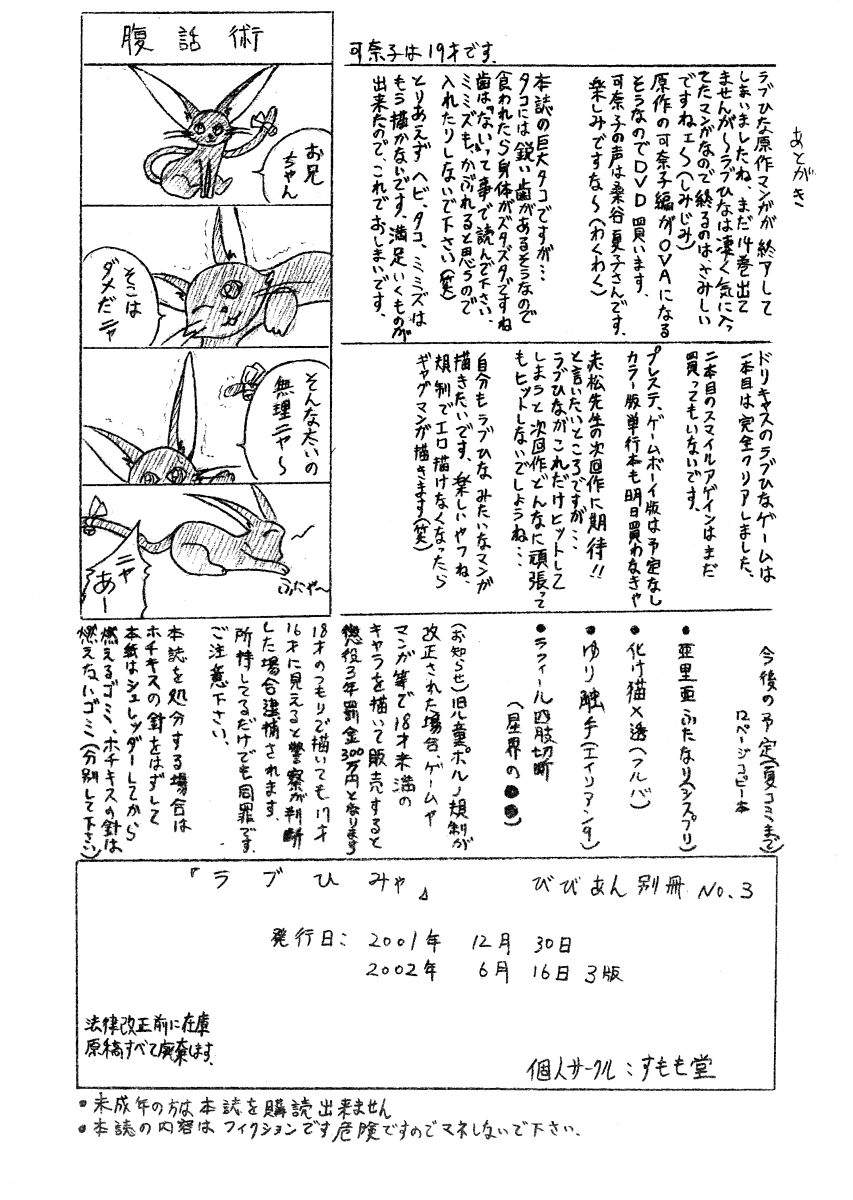 あとがき
ラブひな原作マンガが終アして
しまいましたね、まだ14巻出て
ませんが〜ラブひなは凄く気に入っ
てたマンガなので終るのは、さみしい
ですねェ〜(しみじみ)
原作の可奈子編がOVAになる
そうなのでDVD買います、
可奈子の声は桑谷夏子さんです、
楽しみですな〜(わくわく)
可奈子は19才です、
本誌の巨大タコですが…
タコには鋭い歯があるそうなので
食われたら身体がズタズタですね
歯は「ない」って事で読んで下さい、
ミミズも、かぶれると思うので
入れたりしないで下さい(笑)
とりあえず ヘビ、タコ、ミミズは
もう描かないです、満足いくものが
出来たので、これでおしまいです、
腹話術
お兄
ちゃん
そこは
ダメだ ニャ
そんな太いの
無理ニャ〜
ふにゃ〜
ニャ
あー
ドリキャスのラブひなゲームは
一本目は完全クリアしました、
二本目のスマイルアゲインはまだ
買ってもいないです、
プレステ、ゲームボーイ版は予定なし
カラー版単行本も明日買わなきゃ
赤松先生の次回作に期待!!
と言いたいところですが…
ラブひながこれだけヒットして
しまうと次回作どんなに頑張って
もヒットしないでしょうね…
自分もラブひなみたいなマンガ
描きたいです、楽しいやつね、
規制でエロ描けなくなったら
ギャグマンガ描きます(笑)
今後の予定(夏コミまで)
12ページコピー本
●亜里亜ふたなり(シスプリ)
●化け猫×透(フルバ)
●ゆり触手(エイリアン9)
●ラフィール四肢切断
(星界の●●)
(お知らせ)児童ポルノ規制が
改正された場合、ゲームや
マンガ等で18才未満の
キャラを描いて販売すると
懲役3年罰金300万円となります
18才のつもりで描いても17才
16才に見えると警察が判断
した場合逮捕されます、
所持してるだけでも同罪です、
ご注意下さい、
本誌を処分する場合は
ホチキスの針をはずして
本紙はシュレッダーしてから
燃えるゴミ、ホチキスの針は
燃えないゴミ(分別して下さい)
『ラブひみゃ』 びびあん別冊 No.3
発行日: 2001年 12月 30日
2002年 6月 16日 3版
法律改正前に在庫
原稿すべて廃棄します、
個人サークル:すもも堂
●未成年の方は本誌を購読出来ません
●本誌の内容はフィクションです危険ですのでマネしないで下さい、